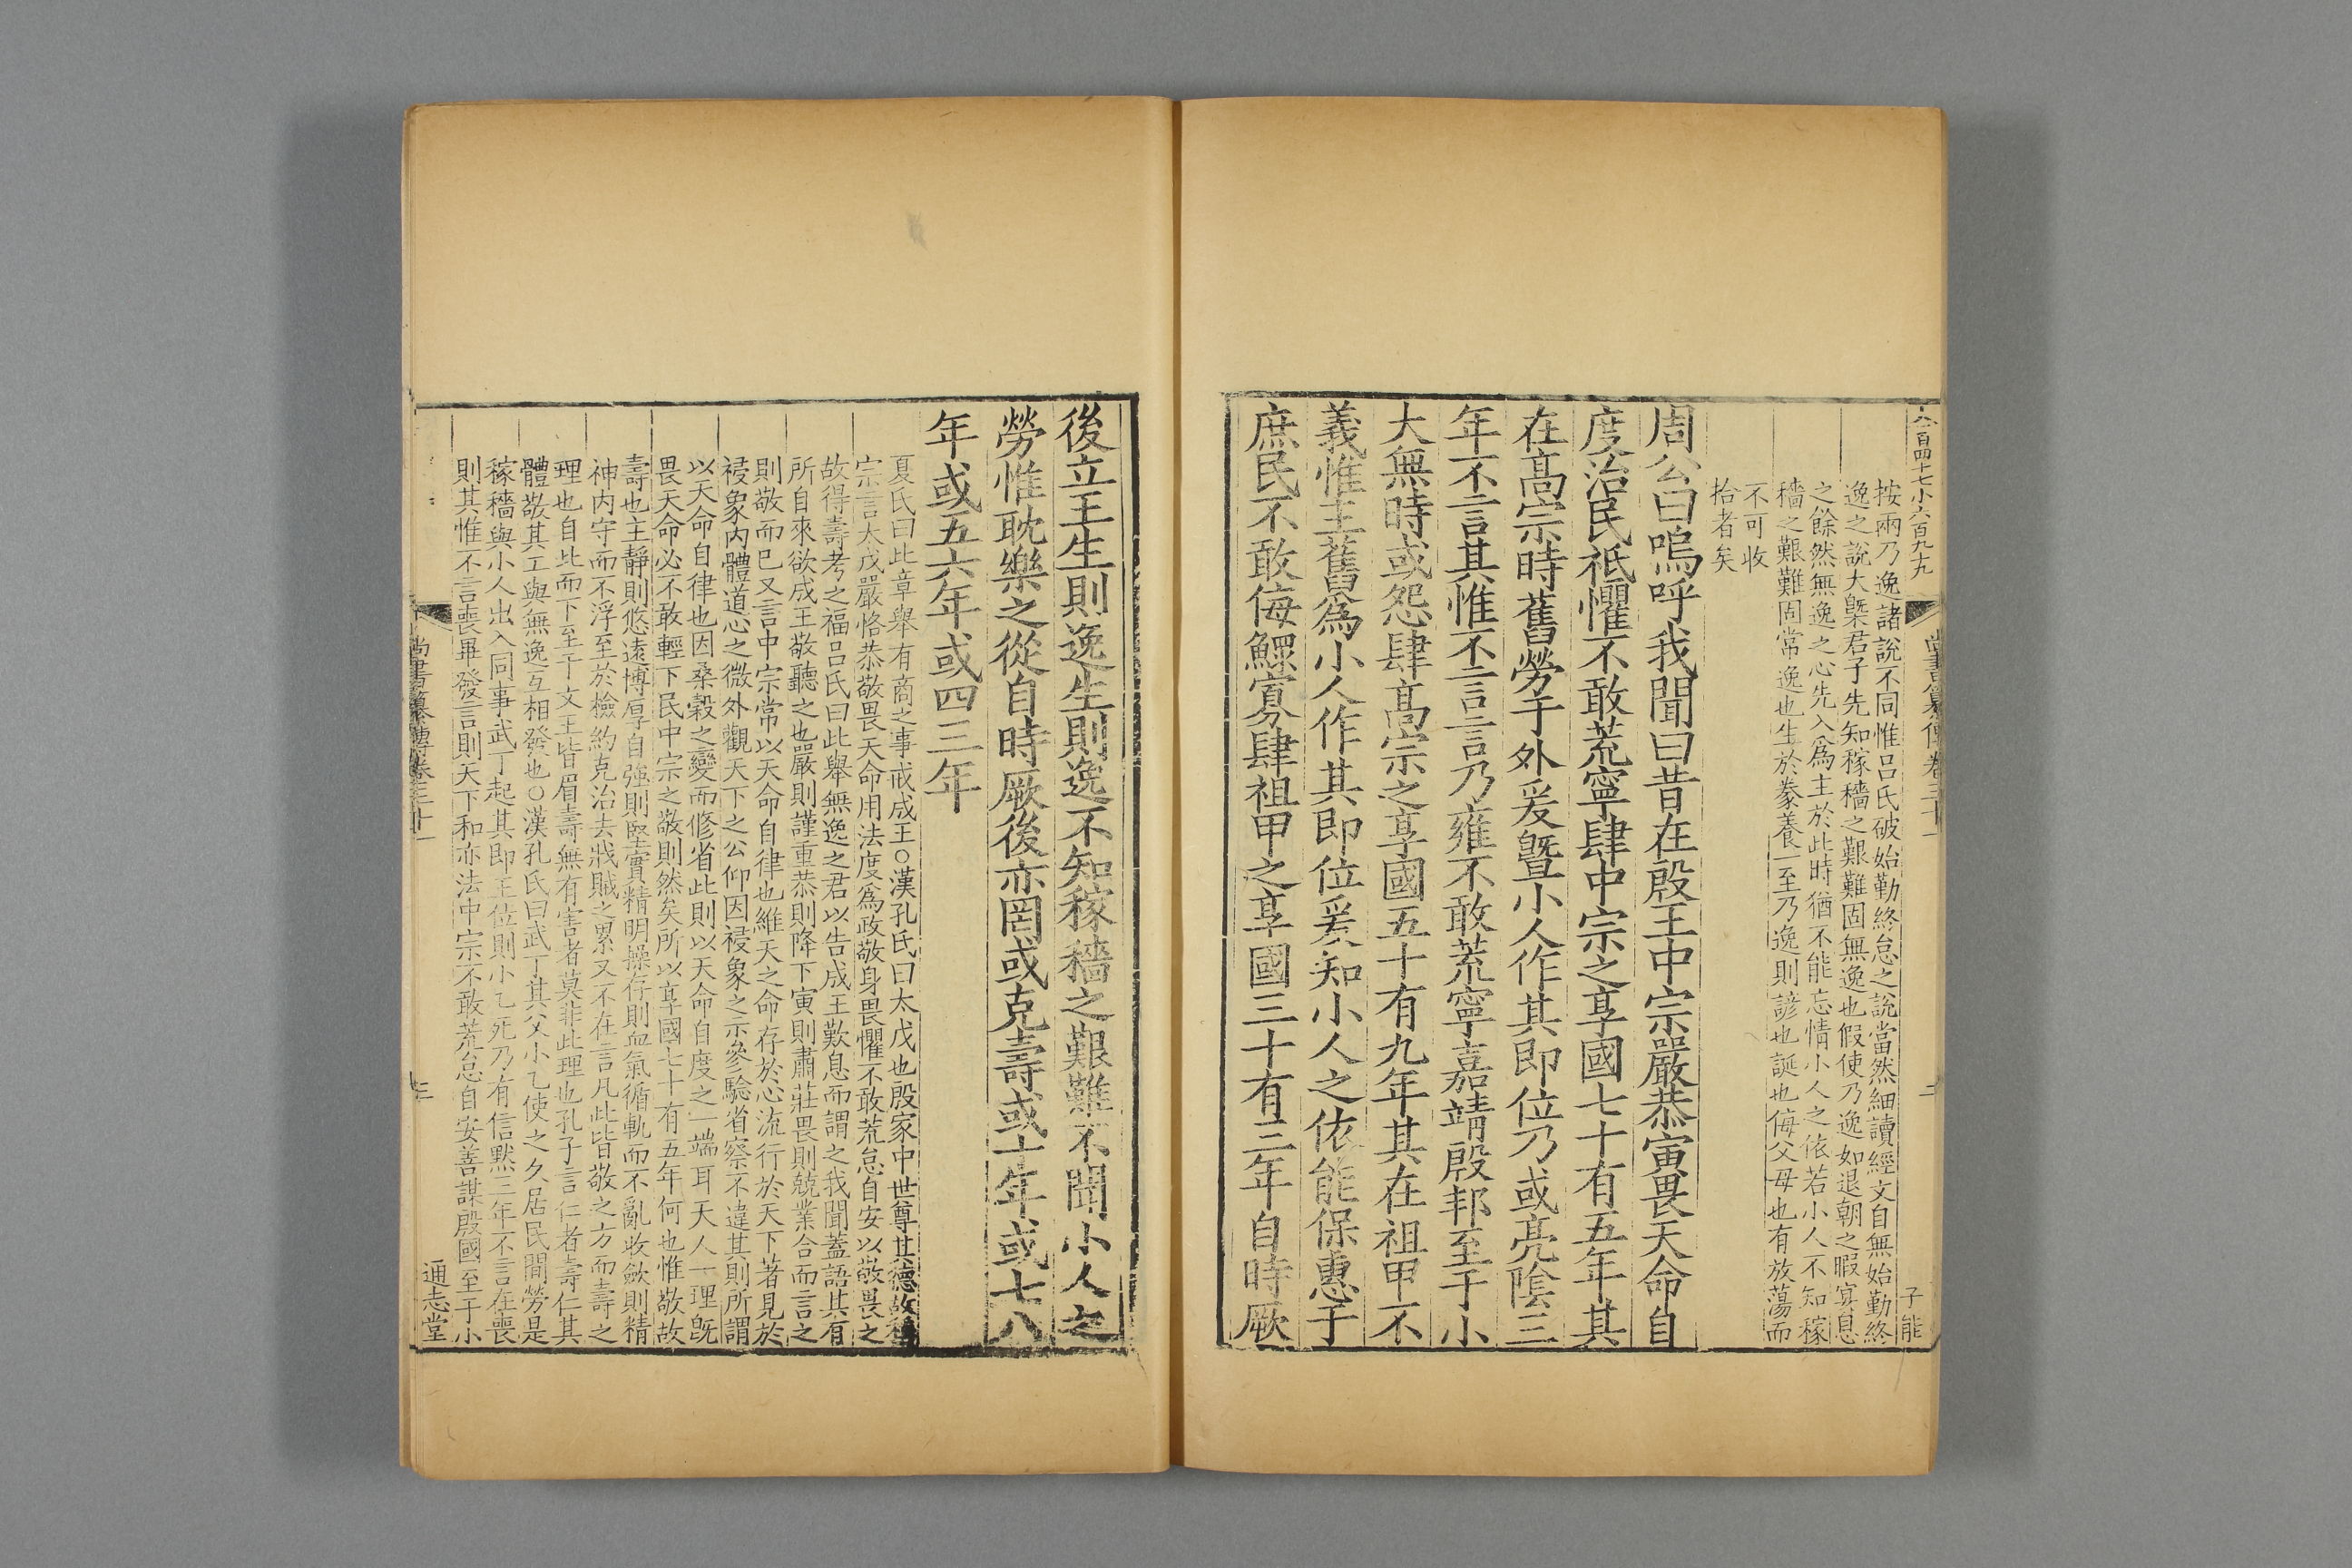 大百四十七小六百九九
尚書纂傳卷三十一
二
子能
按兩乃逸諸說不同惟呂氏破始勤終怠之說當然細讀經文自無始勤終
逸之說大槩君子先知稼穡之艱難固無逸也假使乃逸如退朝之暇宴息
之餘然無逸之心先入爲主於此時猶不能忘情小人之依若小人不知稼
穡之艱難固常逸也生於豢養一至乃逸則諺也誕也侮父母也有放蕩而
不可收
拾者矣
周公曰嗚呼我聞曰昔在殷王中宗嚴恭寅畏天命自
度治民祗懼不敢荒寧肆中宗之享國七十有五年其
在高宗時舊勞于外爰曁小人作其即位乃或亮陰三
年不言其惟不言言乃雍不敢荒寧嘉靖殷邦至于小
大無時或怨肆高宗之享國五十有九年其在祖甲不
義惟王舊爲小人作其即位爰知小人之依能保惠于
庶民不敢侮鰥寡肆祖甲之享國三十有三年自時厥
後立王生則逸生則逸不知稼穡之艱難不聞小人之
勞惟耽樂之從自時厥後亦罔或克壽或十年或七八
年或五六年或四三年
夏氏曰此章舉有商之事戒成王○漢孔氏曰太戊也殷家中世尊其德故稱
宗言太戊嚴恪恭敬畏天命用法度爲政敬身畏懼不敢荒怠自安以敬畏之
故得壽考之福呂氏曰此舉無逸之君以告成王歎息而謂之我聞蓋語其有
所自來欲成王敬聽之也嚴則謹重恭則降下寅則肅莊畏則兢業合而言之
則敬而已又言中宗常以天命自律也維天之命存於心流行於天下著見於
祲象內體道心之微外觀天下之公仰因祲象之示參驗省察不違其則所謂
以天命自律也因桑穀之變而修省此則以天命自度之一端耳天人一理旣
畏天命必不敢輕下民中宗之敬則然矣所以享國七十有五年何也惟敬故
壽也主靜則悠遠博厚自強則堅實精明操存則血氣循軌而不亂收斂則精
神內守而不浮至於檢約克治去戕賊之累又不在言凡此皆敬之方而壽之
理也自此而下至于文王皆眉壽無有害者莫非此理也孔子言仁者壽仁其
體敬其工與無逸互相發也○漢孔氏曰武丁其父小乙使之久居民間勞是
稼穡與小人出入同事武丁起其即王位則小乙死乃有信默三年不言在喪
則其惟不言喪畢發言則天下和亦法中宗不敢荒怠自安善謀殷國至于小
尚書纂傳卷三十一
三
通志堂